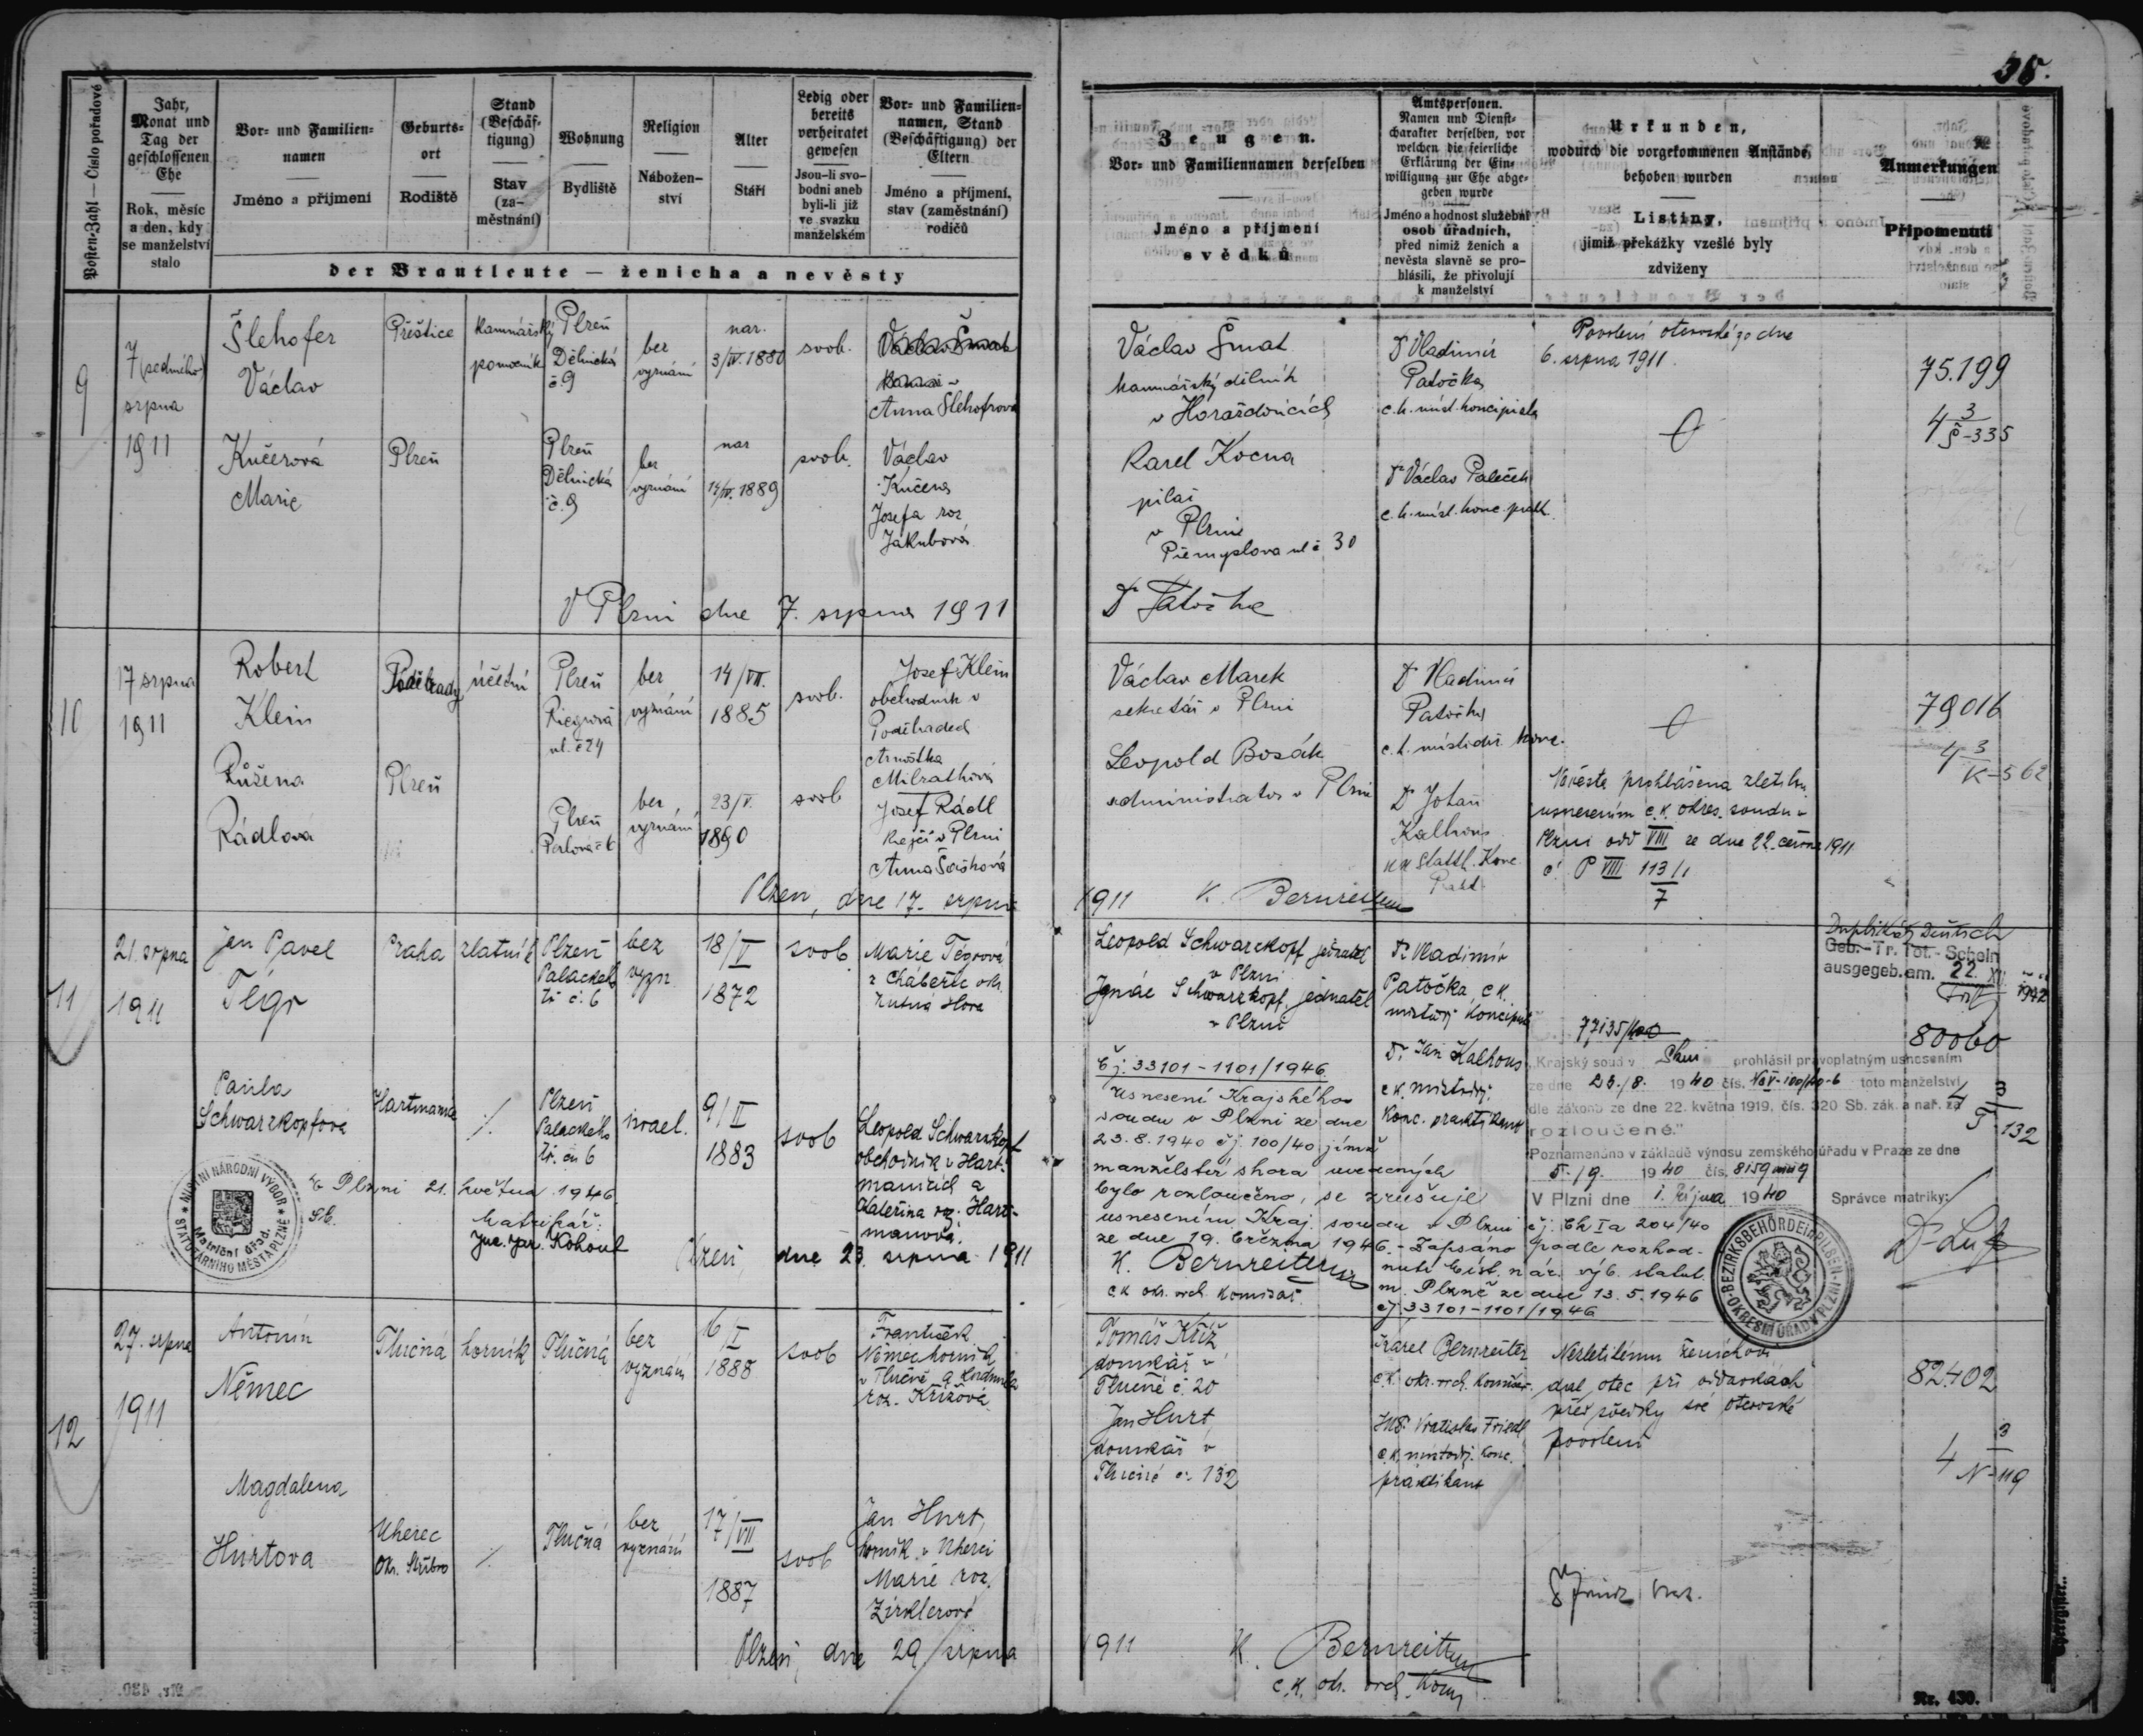 38.
Posten-Zahl — Číslo pořadové
Jahr,
Monat und
Tag der
geschlossenen
Ehe
Rok, měsíc
a den, kdy
se manželství
stalo
Vor- und Familien-
namen
Jméno a příjmení
Geburts-
ort
Rodiště
Stand
(Beschäf-
tigung)
Stav
(za-
městnání)
Wohnung
Bydliště
Religion
Nábožen-
ství
Alter
Stáří
Ledig oder
bereits
verheiratet
gewesen
Jsou-li svo-
bodni aneb
byli-li již
ve svazku
manželském
Vor- und Familien-
namen, Stand
(Beschäftigung) der
Eltern
Jméno a příjmení,
stav (zaměstnání)
rodičů
der Brautleute — ženicha a nevěsty
Zeugen.
Vor- und Familiennamen derselben
Jméno a příjmení
svědků
Amtspersonen.
Namen und Dienst-
charakter derselben, vor
welchen die feierliche
Erklärung der Ein-
willigung zur Ehe abge-
geben wurde
Jméno a hodnost služební
osob úřadních,
před nimiž ženich a
nevěsta slavně se pro-
hlásili, že přivolují
k manželství
Urkunden,
wodurch die vorgekommenen Anstände
behoben wurden
Listiny,
jimiž překážky vzešlé byly
zdviženy
Anmerkungen
Připomenutí
9
7 (sedmého)
srpna
1911
Šlehofer
Václav
Přeštice
kamnářský
pomocník
Plzeň
Dělnická
č. 9
bez
vyznání
nar.
3/IV. 1880
svob.
Anna Šlehofrová
Kučerová
Marie
Plzeň
Plzeň
Dělnická
č. 9
bez
vyznání
nar
14/IV. 1889
svob.
Václav
Kučera
Josefa roz
Jakubová
V Plzni dne 7. srpna 1911
Václav Šmat
kamnářský dělník
v Horažďovicích
Karel Kocna
pilař
v Plzni
Přemyslova ul č 30
Dr Patočka
Dr Vladimír
Patočka
c.k. míst. koncipista
Dr Václav Paleček
c.k. míst. konc. prakt.
Povolení otcovské ze dne
6. srpna 1911.
75.199
4 3/Š-335
10
17 srpna
1911
Robert
Klein
Poděbrady
účetní
Plzeň
Riegrova
ul. č 24
bez
vyznání
14/VII.
1885
svob.
Josef Klein
obchodník v
Poděbradech
Arnoštka
Milrathová
Růžena
Rádlová
Plzeň
Plzeň
bez
vyznání
23/V.
1890
svob
Josef Rádl
krejčí v Plzni
Anna Šašková
Plzeň, dne 17. srpna 1911
K. Bernreiter
Václav Marek
sekretář v Plzni
Leopold Bosák
administrator v Plzni
Dr Vladimír
Patočka
c.k. místodrž. konc.
Dr Johan
Kalhous
kk Statth. Konc
Prakt
Nevěsta prohlášena zletilou
usnesením c.k. okres. soudu v
Plzni odd VIII ze dne 22. června 1911
č. P VIII 113/11
7
79016
4 3/K-562
11
21. srpna
1911
Jan Pavel
Tégr
Praha
zlatník
Plzeň
Palackého
tř. č. 6
bez
vyzn.
18/V
1872
svob.
Marie Tégrová
z Chabeřic okr.
Kutná Hora
Paula
Schwarzkopfová
Plzeň
Palackého
tř. čís 6
israel.
9/II
1883
svob
Leopold Schwarzkopf
obchodník v Hart-
manicích a
Kateřina roz. Hart-
manová.
MÍSTNÍ NÁRODNÍ VÝBOR
STATUTÁRNÍHO MĚSTA PLZNĚ
Matriční úřad.
V Plzni 21. května 1946
Matrikář:
Jar. Kohout
Plzeň, dne 23. srpna 1911
Leopold Schwarzkopf jednatel
v Plzni
Ignác Schwarzkopf, jednatel
v Plzni
Dr Vladimír
Patočka c.k.
místodrž. koncipista
Dr. Jan Kalhous
c.k. místodrž.
konc. praktikant
Čj: 33101-1101/1946
Usnesení Krajského
soudu v Plzni ze dne
23.8.1940 čj. 100/40 jímž
manželství shora uvedených
bylo rozloučeno, se zrušuje
usnesením Kraj. soudu v Plzni čj: Ck Ia 204/40
ze dne 19. března 1946. - Zapsáno podle rozhod-
nutí Míst. nár. výb. statut.
m. Plzně ze dne 13.5.1946
čj 33101-1101/1946
K. Bernreiter
c.k. okr. vrch. komisař.
Duplikát Deutsch
Geb.-Tr. Tot.-Schein
ausgegeb. am. 22. XII. 1942
77135/40
80060
4 3/T-132
„Krajský soud v Plzni prohlásil pravoplatným usnesením
ze dne 23./8. 1940 čís. Nc V-100/40-6 toto manželství
dle zákona ze dne 22. května 1919, čís. 320 Sb. zák. a nař. za
rozloučené."
Poznamenáno v základě výnosu zemského úřadu v Praze ze dne
5./9. 1940 čís. 8159
V Plzni dne 1. října 1940 Správce matriky:
BEZIRKSBEHÖRDE IN PILSEN
OKRESNÍ ÚŘAD V PLZNI
12
27. srpna
1911
Antonín
Němec
Tlučná
horník
Tlučná
bez
vyznání
16/I
1888
svob
František
Němec horník
v Tlučné a Lidmila
roz. Křížová
Magdalena
Hurtova
Uherec
okr. Stříbro
Tlučná
bez
vyznání
17/VII
1887
svob
Jan Hurt,
horník v Uherci
Marie roz.
Zirklerová
Plzeň, dne 29. srpna 1911
Tomáš Kříž
domkář v
Tlučné č. 20
Jan Hurt
domkář v
Tlučné č. 132
Karel Bernreiter
c.k. okr. vrch. komisař.
JUDr. Vratislav Friedl
c.k. místodrž. konc.
praktikant
Nezletilému ženichovi
dal otec při oddavkách
před svědky své otcovské
povolení
82402
4 3/N-119
K. Bernreiter
c.k. okr. vrch. kom.
Nr. 430.